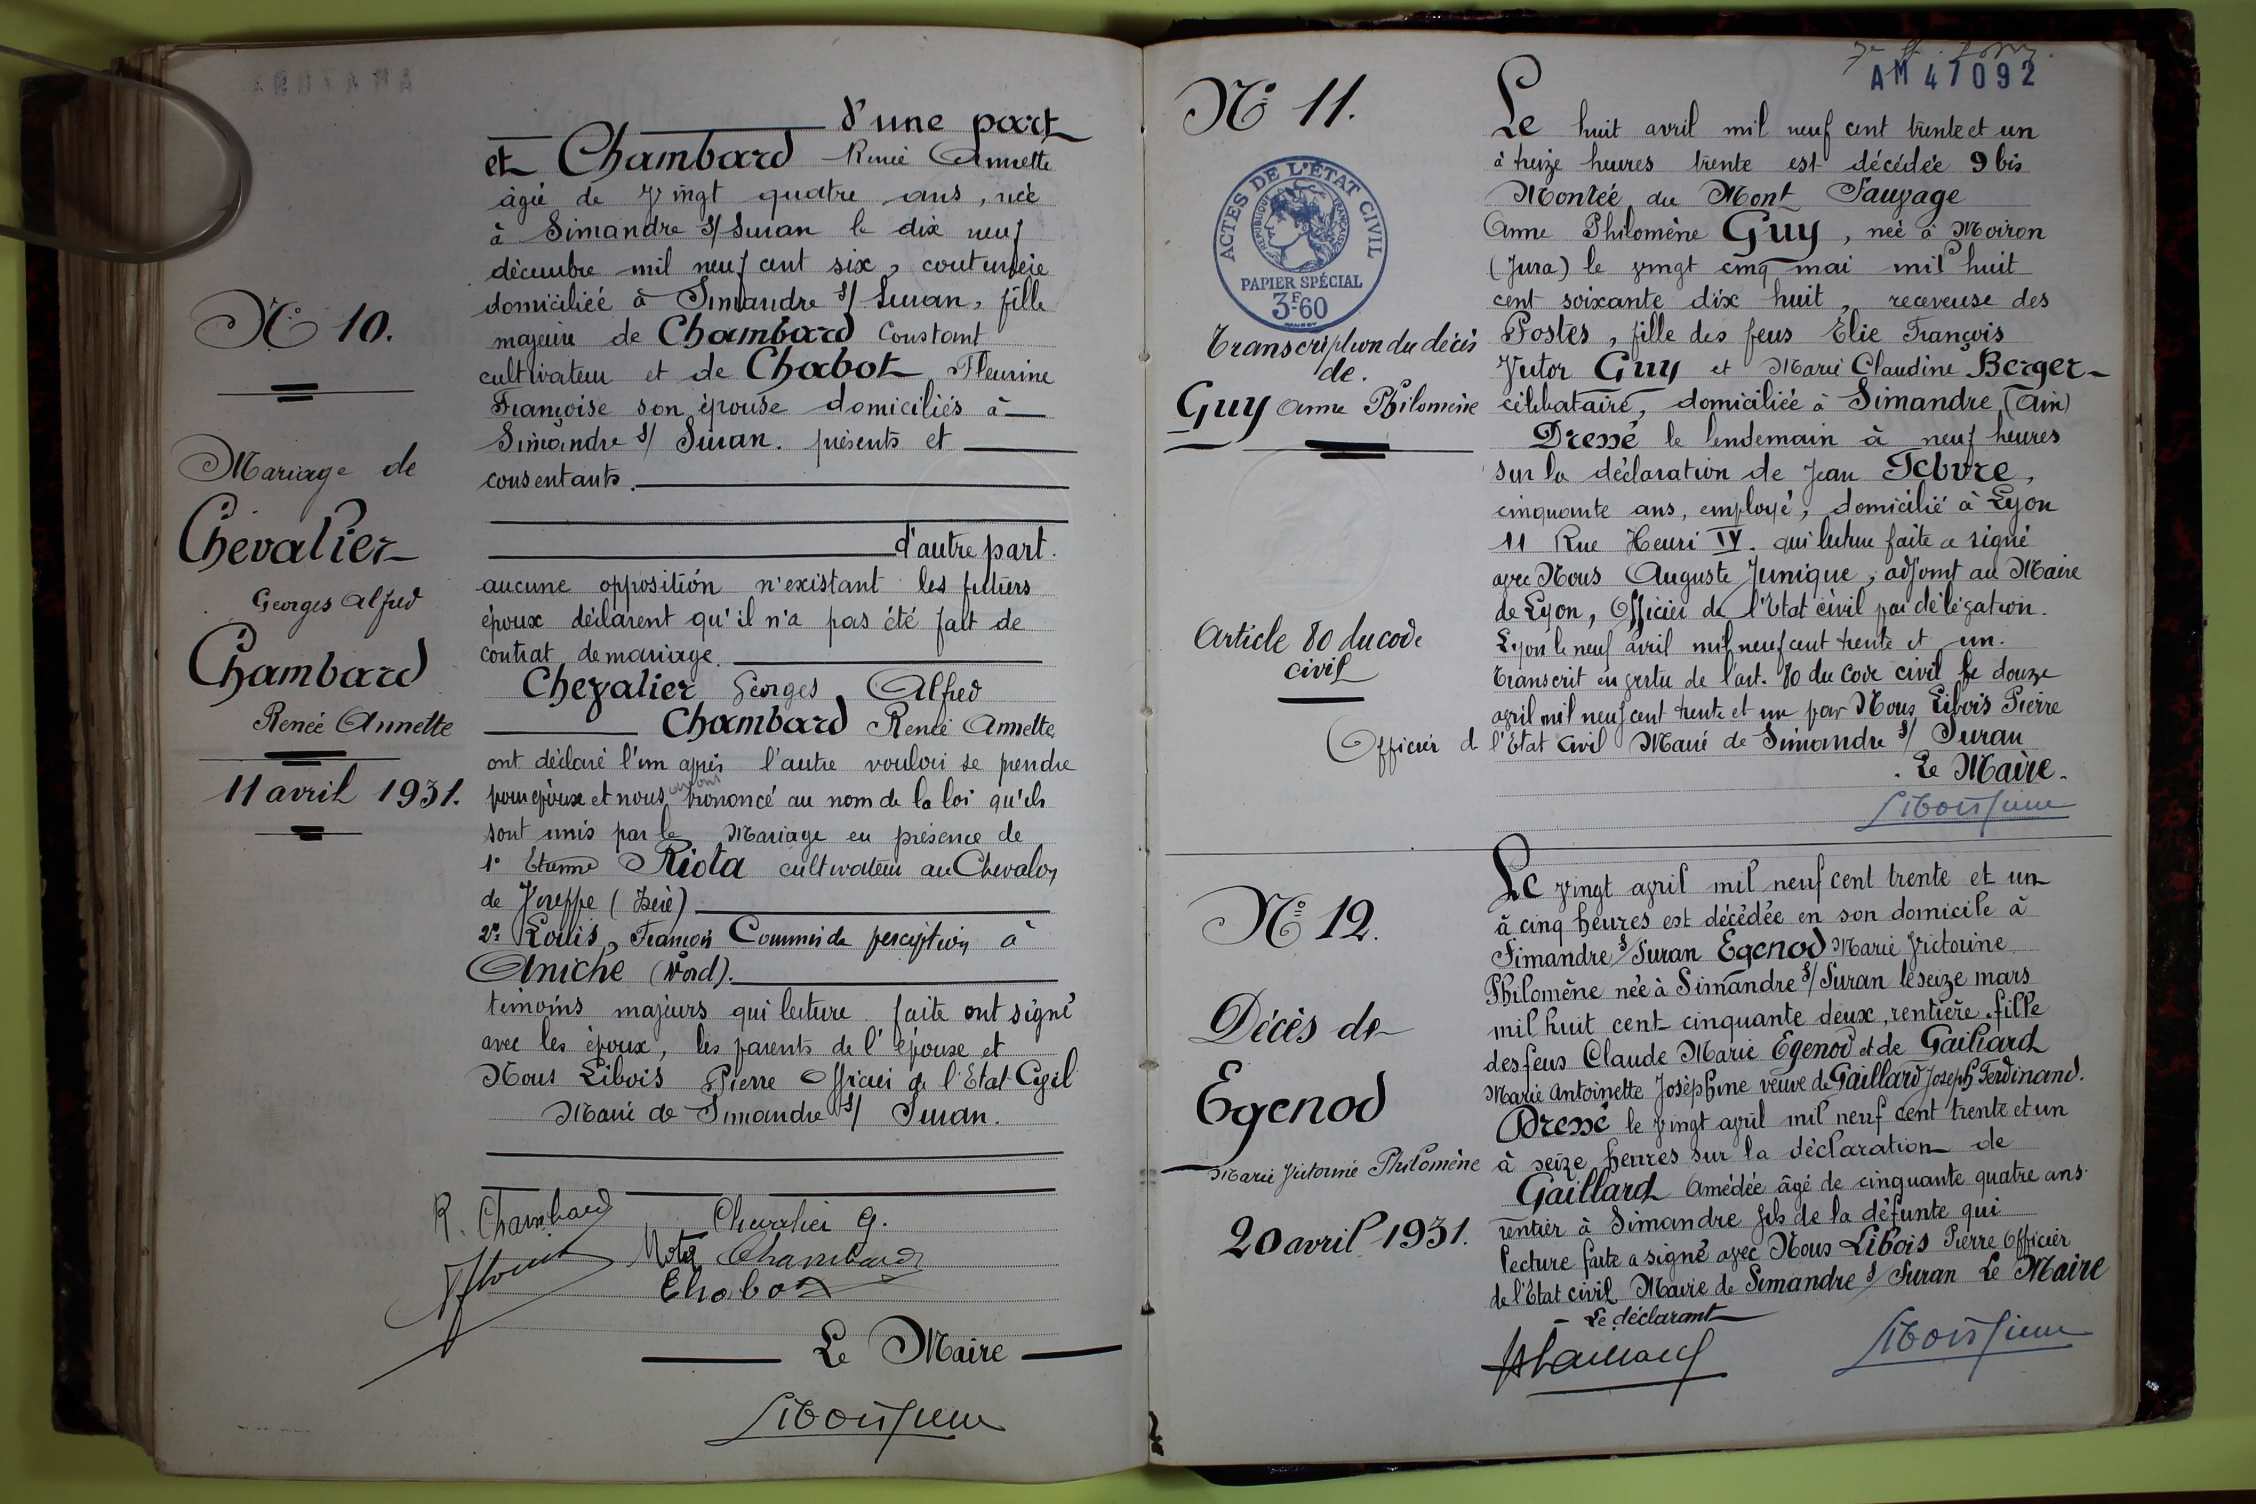 N° 10.
Mariage de
Chevalier
Georges Alfred
Chambard
Renée Annette
11 avril 1931.
d'une part
et Chambard Renée Annette
âgée de vingt quatre ans, née
à Simandre s/ Suran le dix neuf
décembre mil neuf cent six, couturière
domiciliée à Simandre s/ Suran, fille
majeure de Chambard Constant
cultivateur et de Chabot Fleurine
Françoise son épouse domiciliés à
Simandre s/ Suran. présents et
consentants.
d'autre part.
aucune opposition n'existant les futurs
époux déclarent qu'il n'a pas été fait de
contrat de mariage.
Chevalier Georges Alfred
Chambard Renée Annette
ont déclaré l'un après l'autre vouloir se prendre
pour époux et nous avons prononcé au nom de la loi qu'ils
sont unis par le Mariage en présence de
1° Etienne Riota cultivateur au Chevalon
de Voreppe (Isère)
2° Louis, François Commis de perception à
Aniche (Nord).
témoins majeurs qui lecture faite ont signé
avec les époux, les parents de l'épouse et
Nous Libois Pierre Officier de l'Etat Civil
Maire de Simandre s/ Suran.
R. Chambard Chevalier G.
Chambard
Chabot
Le Maire
Libois Pierre
AM 47092
N° 11.
ACTES DE L'ÉTAT CIVIL
RÉPUBLIQUE FRANÇAISE
PAPIER SPÉCIAL
3F60
Transcription du décès
de.
Guy Anne Philomène
Article 80 du code
civil
Le huit avril mil neuf cent trente et un
à treize heures trente est décédée 9 bis
Montée du Mont Sauvage
Anne Philomène Guy, née à Moiron
(Jura) le vingt cinq mai mil huit
cent soixante dix huit, receveuse des
Postes, fille des feus Elie François
Victor Guy et Marie Claudine Berger
célibataire, domiciliée à Simandre (Ain)
Dressé le lendemain à neuf heures
sur la déclaration de Jean Febvre,
cinquante ans, employé, domicilié à Lyon
11 Rue Henri IV. qui lecture faite a signé
avec Nous Auguste Junique, adjoint au Maire
de Lyon, Officier de l'Etat civil par délégation.
Lyon le neuf avril mil neuf cent trente et un.
Transcrit en vertu de l'art. 80 du Code civil le douze
avril mil neuf cent trente et un par Nous Libois Pierre
Officier d l'Etat Civil Maire de Simandre s/ Suran
. Le Maire.
Libois Pierre
N° 12.
Décès de
Egenod
Marie Victorine Philomène
20 avril 1931.
Le vingt avril mil neuf cent trente et un
à cinq heures est décédée en son domicile à
Simandre s/ Suran Egenod Marie Victorine
Philomène née à Simandre s/ Suran le seize mars
mil huit cent cinquante deux, rentière. fille
des feus Claude Marie Egenod et de Gaillard
Marie Antoinette Joséphine veuve de Gaillard Joseph Ferdinand.
Dressé le vingt avril mil neuf cent trente et un
à seize heures sur la déclaration de
Gaillard Amédée âgé de cinquante quatre ans.
rentier à Simandre fils de la défunte qui
lecture faite a signé avec Nous Libois Pierre Officier
de l'Etat civil Maire de Simandre s/ Suran Le Maire
Le déclarant
Gaillard Libois Pierre